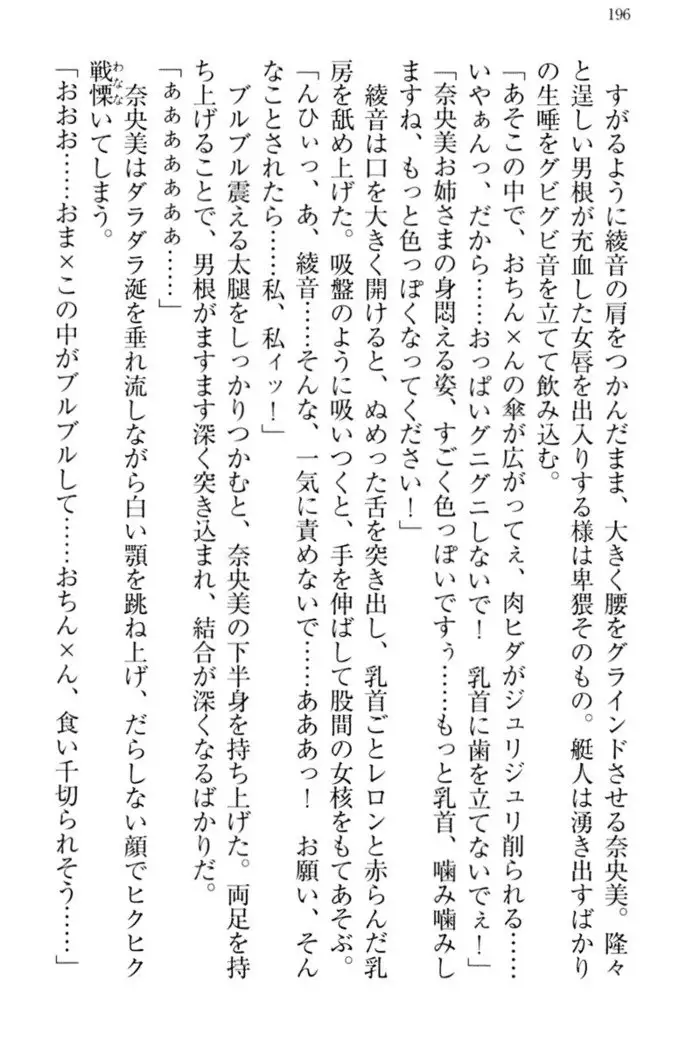 196
すがるように綾音の肩をつかんだまま、大きく腰をグラインドさせる奈央美。隆々
と逞しい男根が充血した女唇を出入りする様は卑猥そのもの。艇人は湧き出すばかり
の生唾をグビグビ音を立てて飲み込む。
「あそこの中で、おちん×んの傘が広がってぇ、肉ヒダがジュリジュリ削られる……
いやぁんっ、だから……おっぱいグニグニしないで！　乳首に歯を立てないでぇ！」
「奈央美お姉さまの身悶える姿、すごく色っぽいですぅ……もっと乳首、噛み噛みし
ますね、もっと色っぽくなってください！」
綾音は口を大きく開けると、ぬめった舌を突き出し、乳首ごとレロンと赤らんだ乳
房を舐め上げた。吸盤のように吸いつくと、手を伸ばして股間の女核をもてあそぶ。
「んひぃっ、あ、綾音……そんな、一気に責めないで……あああっ！　お願い、そん
なことされたら……私、私ィッ！」
ブルブル震える太腿をしっかりつかむと、奈央美の下半身を持ち上げた。両足を持
ち上げることで、男根がますます深く突き込まれ、結合が深くなるばかりだ。
「ぁぁぁぁぁぁぁ……」
奈央美はダラダラ涎を垂れ流しながら白い顎を跳ね上げ、だらしない顔でヒクヒク
戦慄わなないてしまう。
「おおお……おま×この中がブルブルして……おちん×ん、食い千切られそう……」